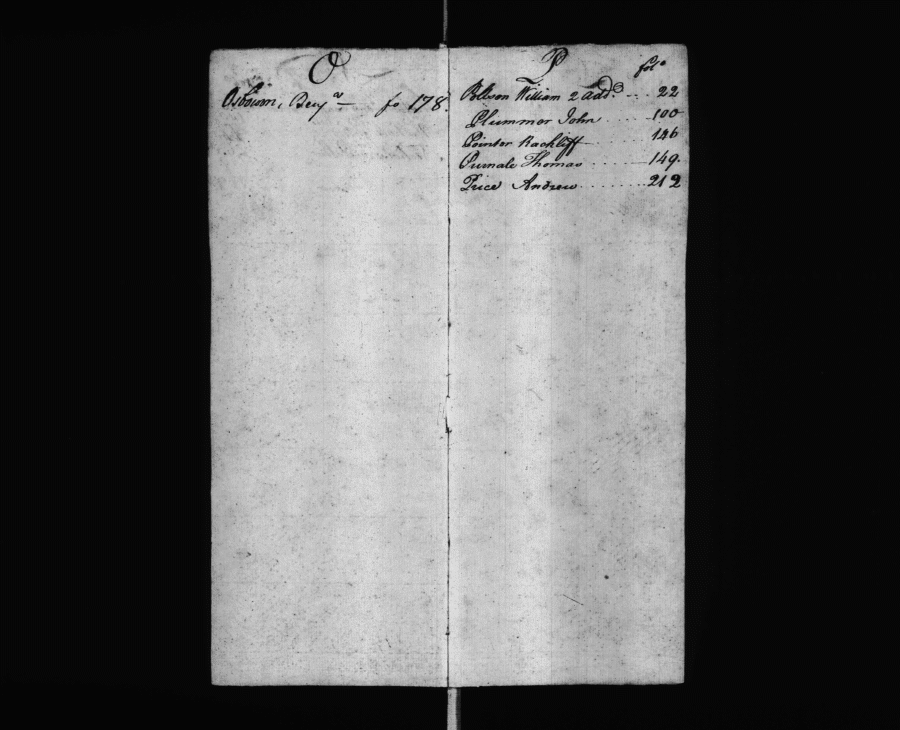 O
Osbourn, Benjn — fo 178
P
folo
William 2 Add.d ... 22
Plummer John ..... 100
Pointer Rackliff ..... 146
Purnale Thomas ..... 149
Price Andrew ........ 212